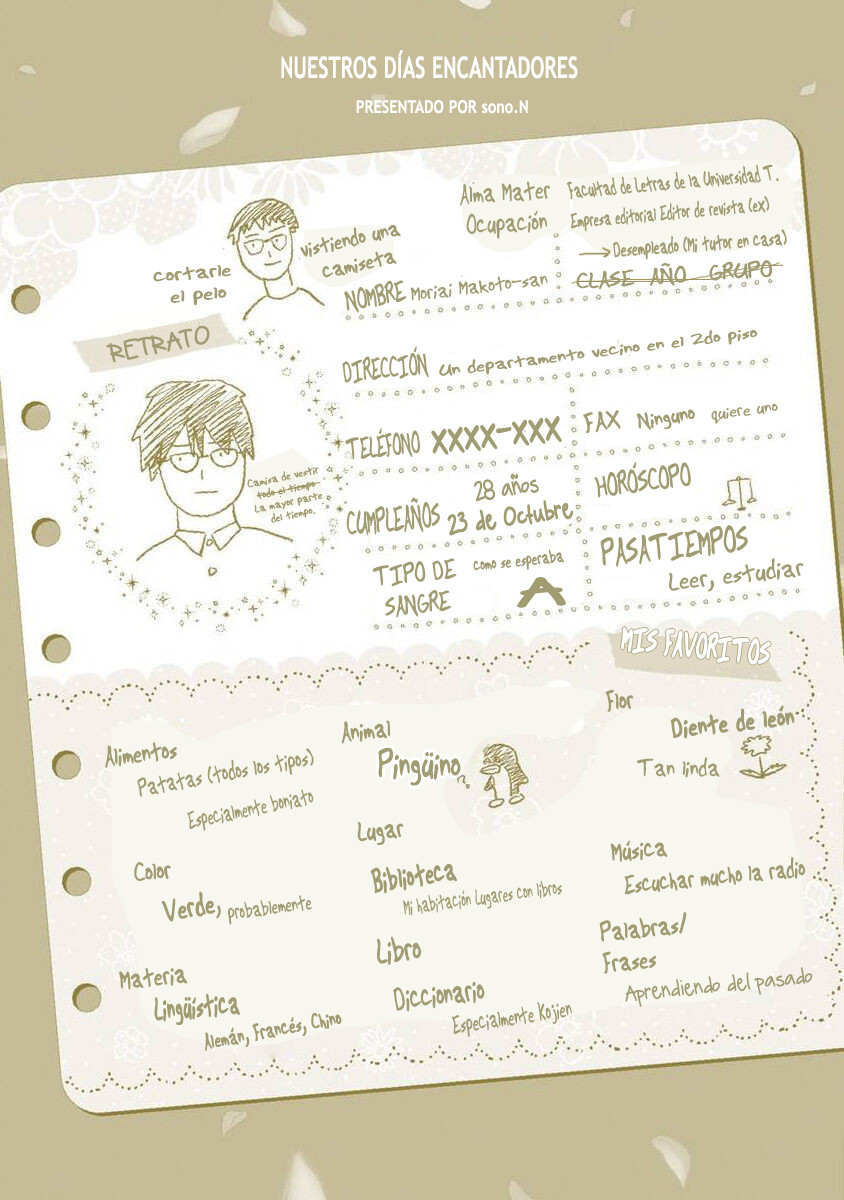 NUESTROS DÍAS ENCANTADORES
PRESENTADO POR sono.N
cortarle
el pelo
vistiendo una
camiseta
Alma Mater
Ocupación
Facultad de Letras de la Universidad T.
Empresa editorial Editor de revista (ex)
→ Desempleado (Mi tutor en casa)
NOMBRE Moriai Makoto-san
CLASE AÑO GRUPO
RETRATO
Camisa de vestir
todo el tiempo
La mayor parte
del tiempo.
DIRECCIÓN un departamento vecino en el 2do piso
TELÉFONO XXXX-XXX
FAX Ninguno quiere uno
CUMPLEAÑOS 28 años
23 de Octubre
HORÓSCOPO
TIPO DE
SANGRE
como se esperaba
A
PASATIEMPOS
Leer, estudiar
MIS FAVORITOS
Alimentos
Patatas (todos los tipos)
Especialmente boniato
Animal
Pingüino?
Flor
Diente de león
Tan linda
Color
Verde, probablemente
Lugar
Biblioteca
Mi habitación Lugares con libros
Música
Escuchar mucho la radio
Materia
Lingüística
Alemán, Francés, Chino
Libro
Diccionario
Especialmente Kojien
Palabras/
Frases
Aprendiendo del pasado